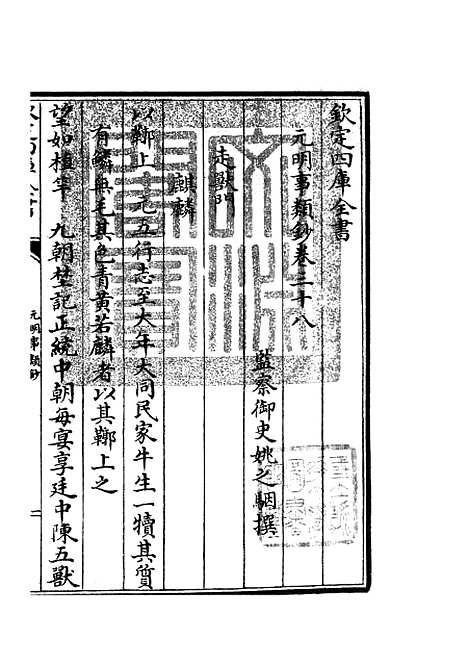 欽定四庫全書
元明事類鈔卷三十八
監察御史姚之駰撰
走獸門
麒麟
以鞹上 元五行志至大年大同民家牛生一犢其質
有鱗無毛其色青黃若麟者以其鞹上之
望如植竿 九朝埜記正統中朝每宴享廷中陳五獸
欽定四庫全書
元明事類鈔